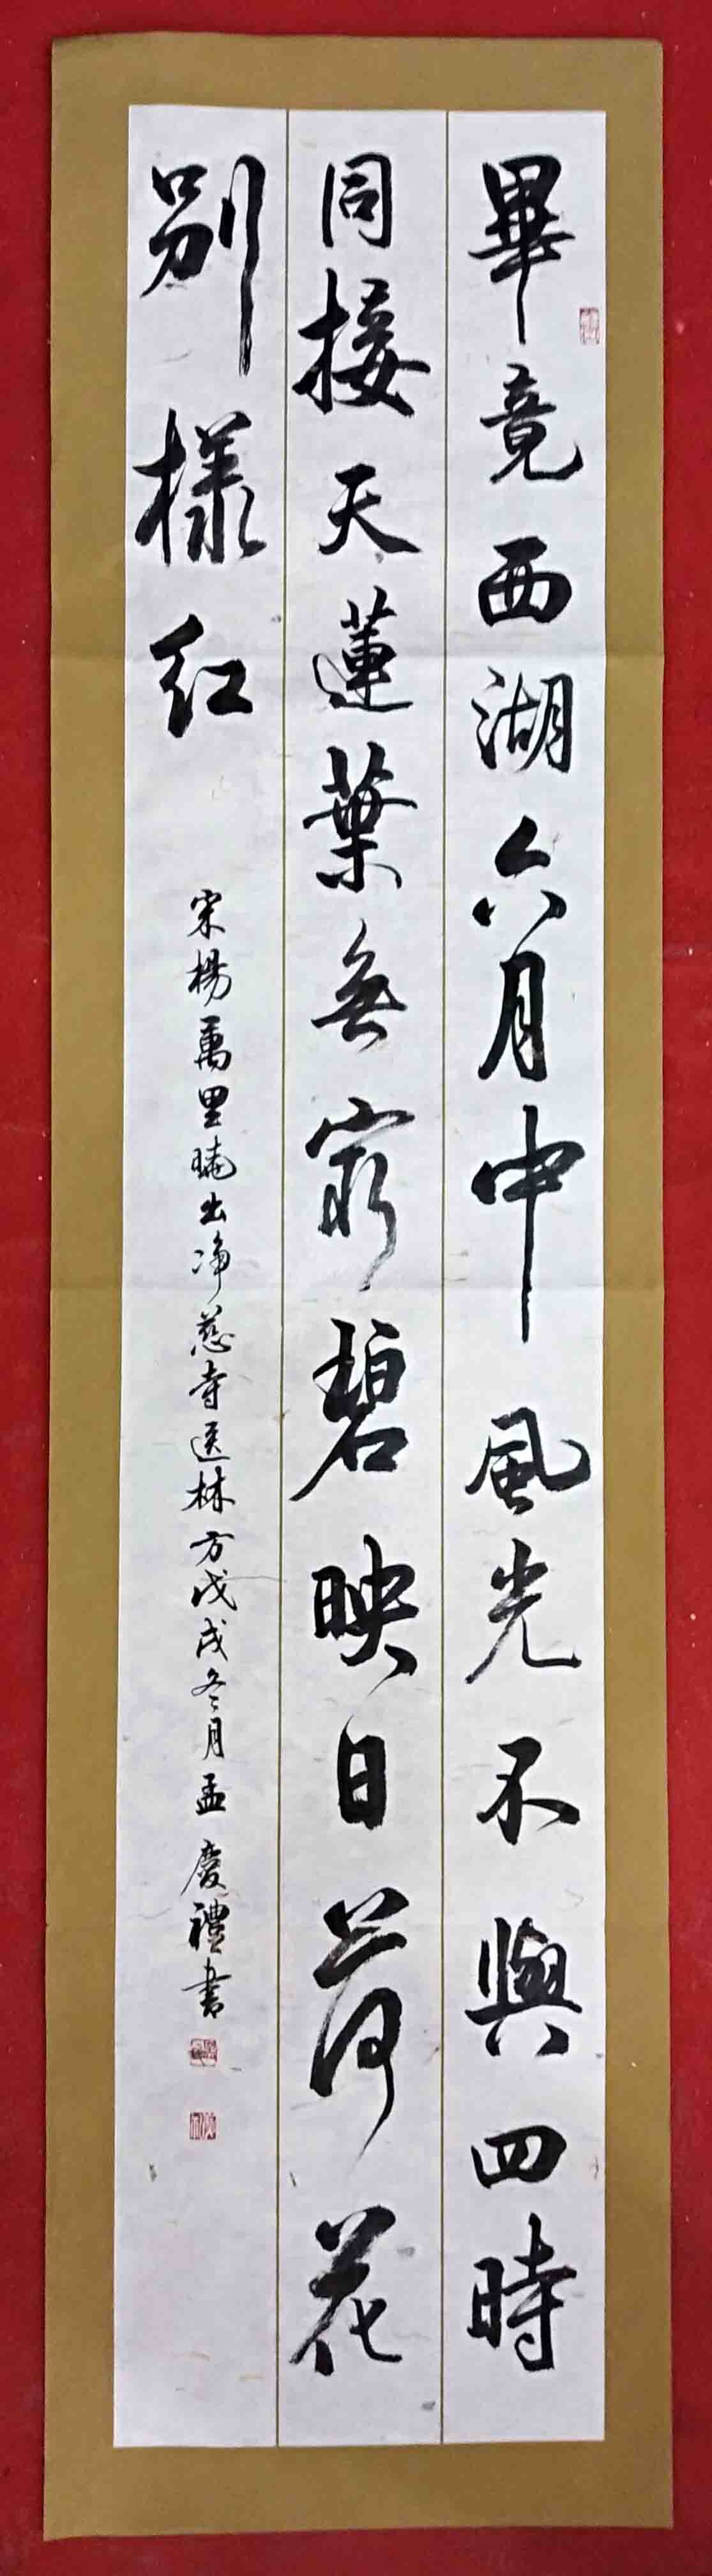 畢竟西湖六月中風光不與四時
同接天蓮葉無窮碧映日荷花
別樣红
宋楊萬里曉出净慈寺送林方戊戌冬月孟慶禮書